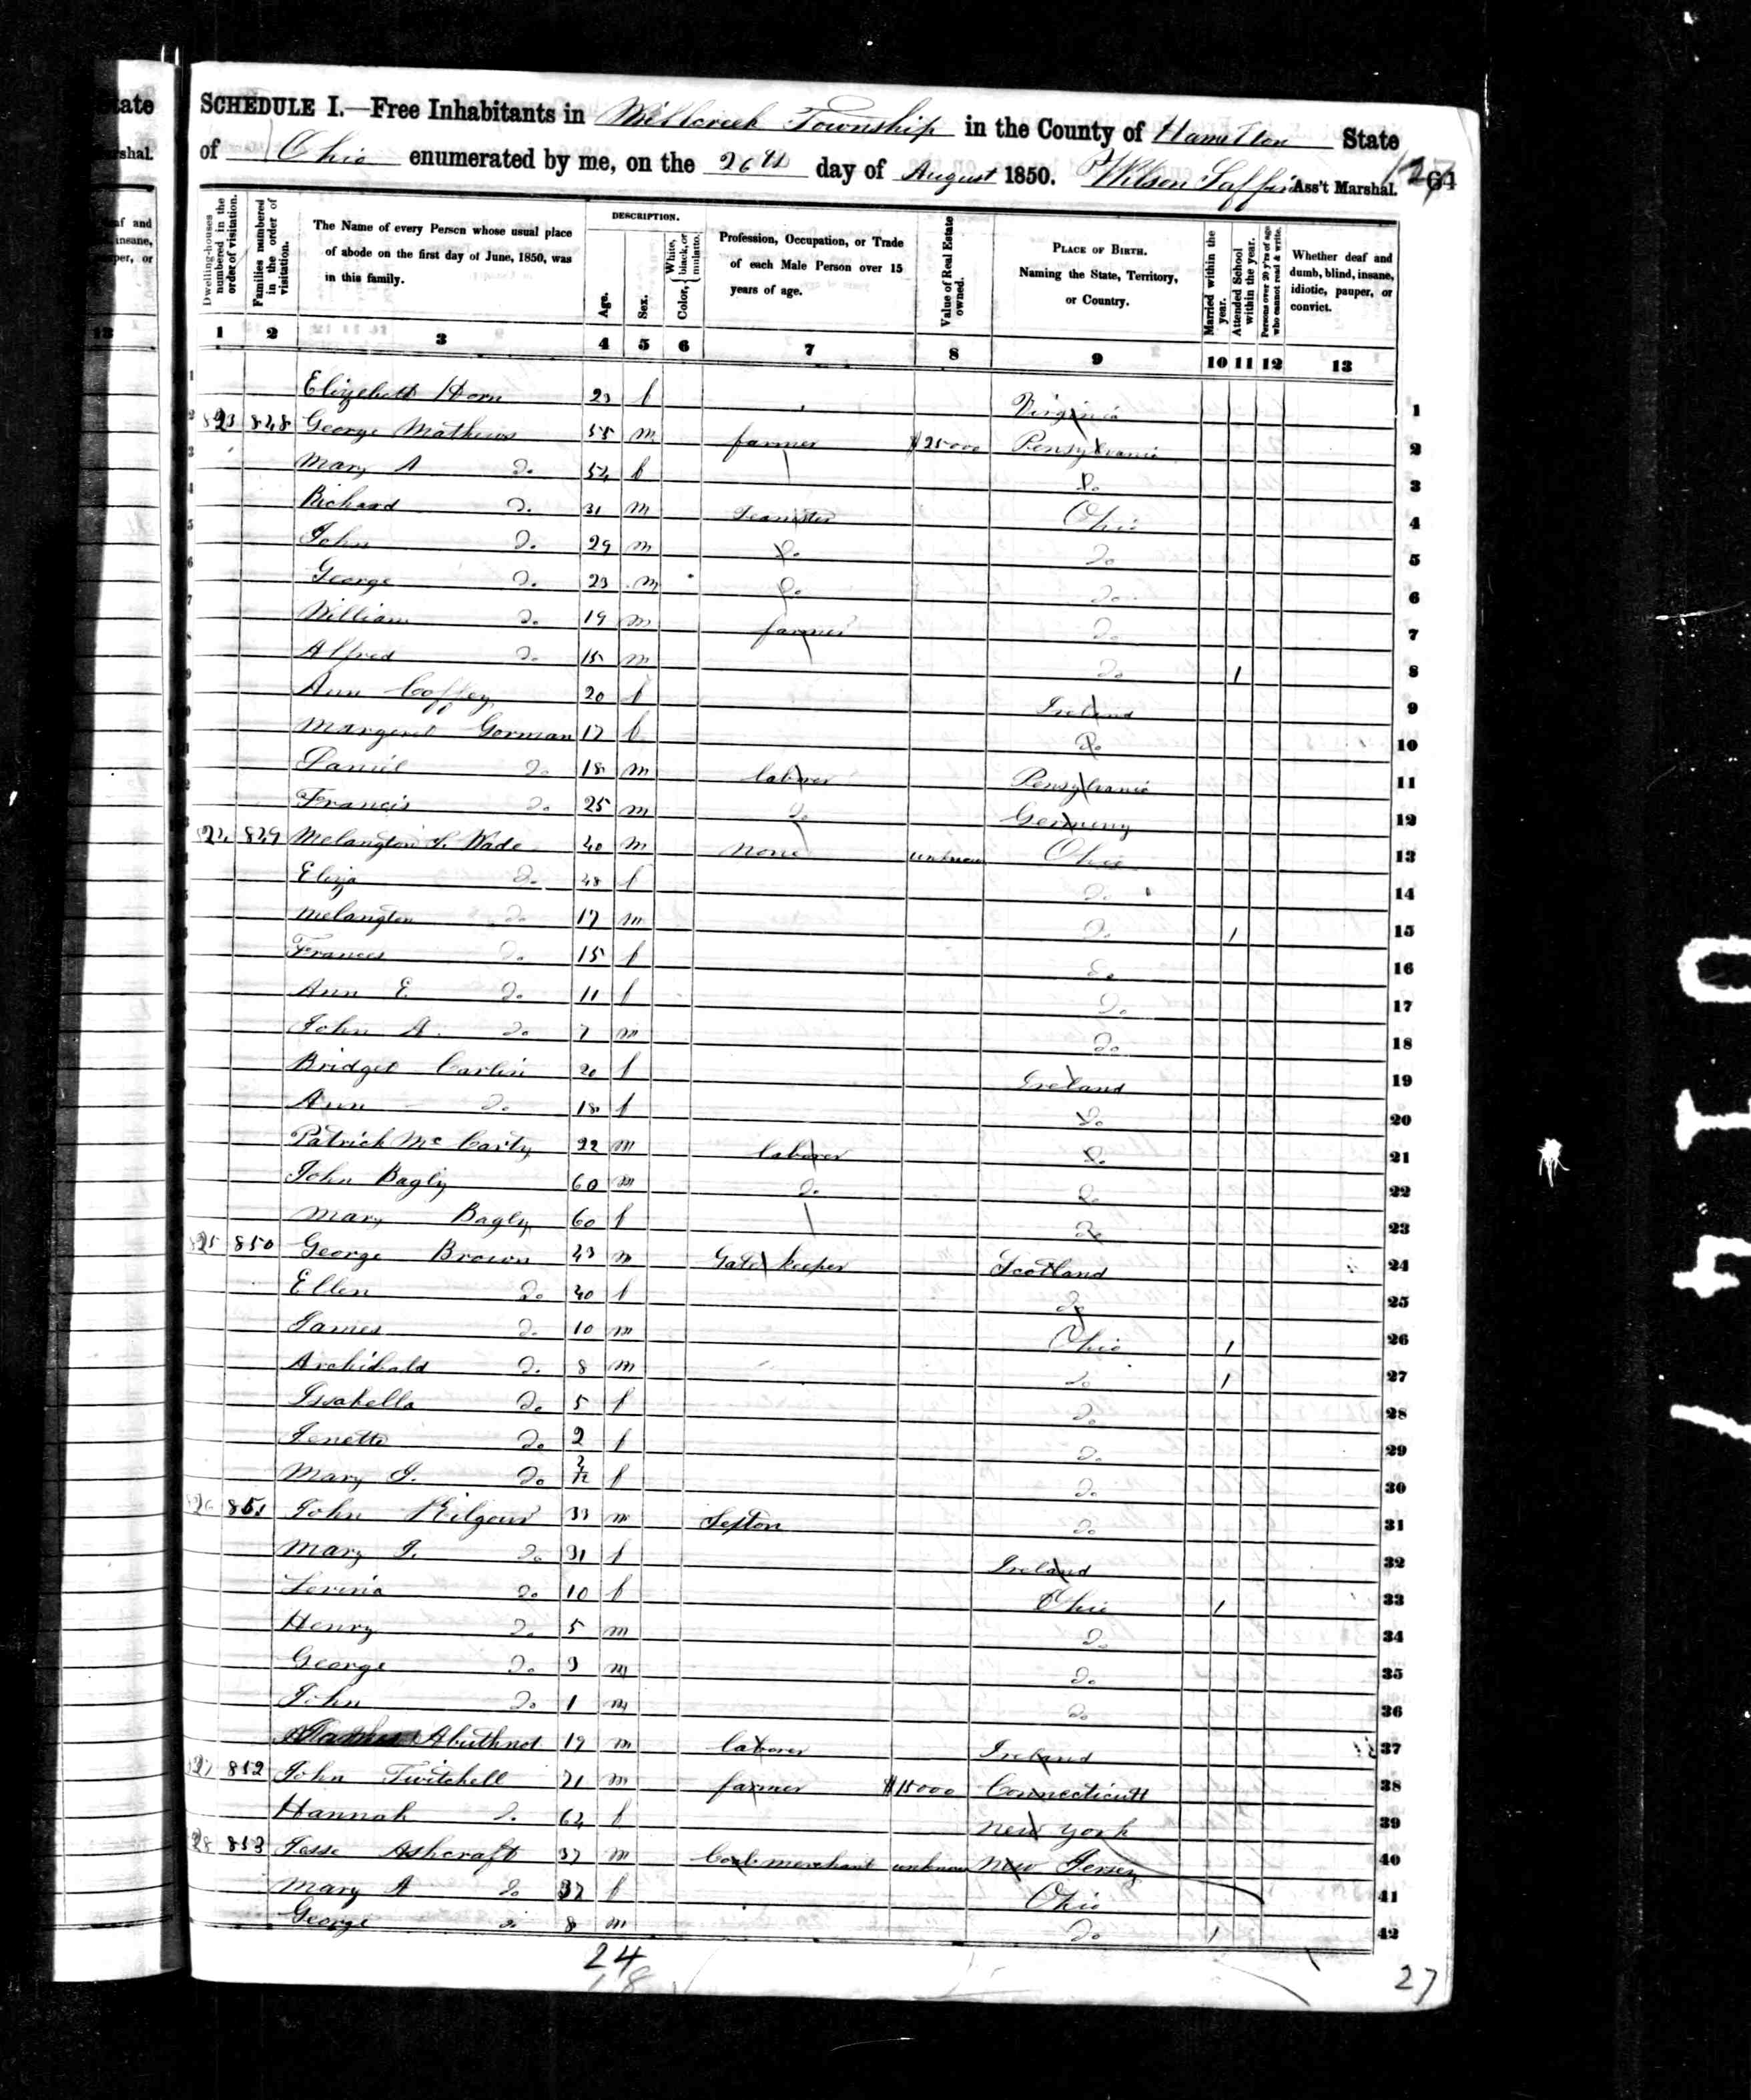 tate
arshal.
af and
insane,
per, or
13
SCHEDULE I.—Free Inhabitants in Millcreek Township in the County of Hamilton State
of Ohio enumerated by me, on the 26th day of August 1850. Wilson Ass't Marshal. 64
Dwelling-houses numbered in the order of visitation.
Families numbered in the order of visitation.
The Name of every Person whose usual place of abode on the first day of June, 1850, was in this family.
DESCRIPTION.
Age.
Sex.
Color, { White, black, or mulatto.
Profession, Occupation, or Trade of each Male Person over 15 years of age.
Value of Real Estate owned.
PLACE OF BIRTH. Naming the State, Territory, or Country.
Married within the year.
Attended School within the year.
Persons over 20 y'rs of age who cannot read & write.
Whether deaf and dumb, blind, insane, idiotic, pauper, or convict.
1 2 3 4 5 6 7 8 9 10 11 12 13
Elizebeth Horn 23 f Virginia 1
823 848 George Mathews 55 m farmer $25000 Pensylvania 2
Mary A Do 52 f Do 3
Richard Do 31 m Teamster Ohio 4
John Do 29 m Do Do 5
George Do 23 m Do Do 6
William Do 19 m farmer Do 7
Alfred Do 15 m Do 1 8
Ann Coffey 20 f Ireland 9
Margaret Gorman 17 f Do 10
Daniel Do 18 m laborer Pensylvania 11
Francis Do 25 m Do Germany 12
849 Melangton S. Wade 40 m None unknown Ohio 13
Eliza Do 48 f Do 14
Melangton Do 17 m Do 1 15
Frances Do 15 f Do 16
Ann E. Do 11 f Do 17
John A. Do 7 m Do 18
Bridget Carlin 20 f Ireland 19
Ann Do 18 f Do 20
Patrick Mc Carty 22 m laborer Do 21
John Bagly 60 m Do Do 22
Mary Bagly 60 f Do 23
825 850 George Brown 43 m Gate keeper Scotland 24
Ellen Do 40 f Do 25
James Do 10 m Ohio 1 26
Archibald Do 8 m Do 1 27
Issabella Do 5 f Do 28
Jenette Do 2 f Do 29
Mary J. Do f Do 30
851 John Kilgour 33 m Sexton Do 31
Mary J. Do 31 f Ireland 32
Levinia Do 10 f Ohio 1 33
Henry Do 5 m Do 34
George Do 3 m Do 35
John Do 1 m Do 36
Abuthnot 19 m laborer Ireland 37
852 John Twitchell 71 m farmer $15000 Connecticutt 38
Hannah Do 62 f New York 39
28 853 Jesse Ashcraft 37 m Coal merchant unknown New Jersey 40
Mary A Do 37 f Ohio 41
George Do 8 m Do 1 42
24
18
27